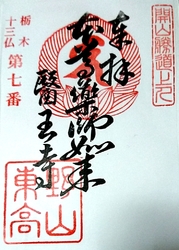 奉拝
開山勝道上人
本尊薬師如来
醫王寺
栃木
十三仏
第七番
東高
野山